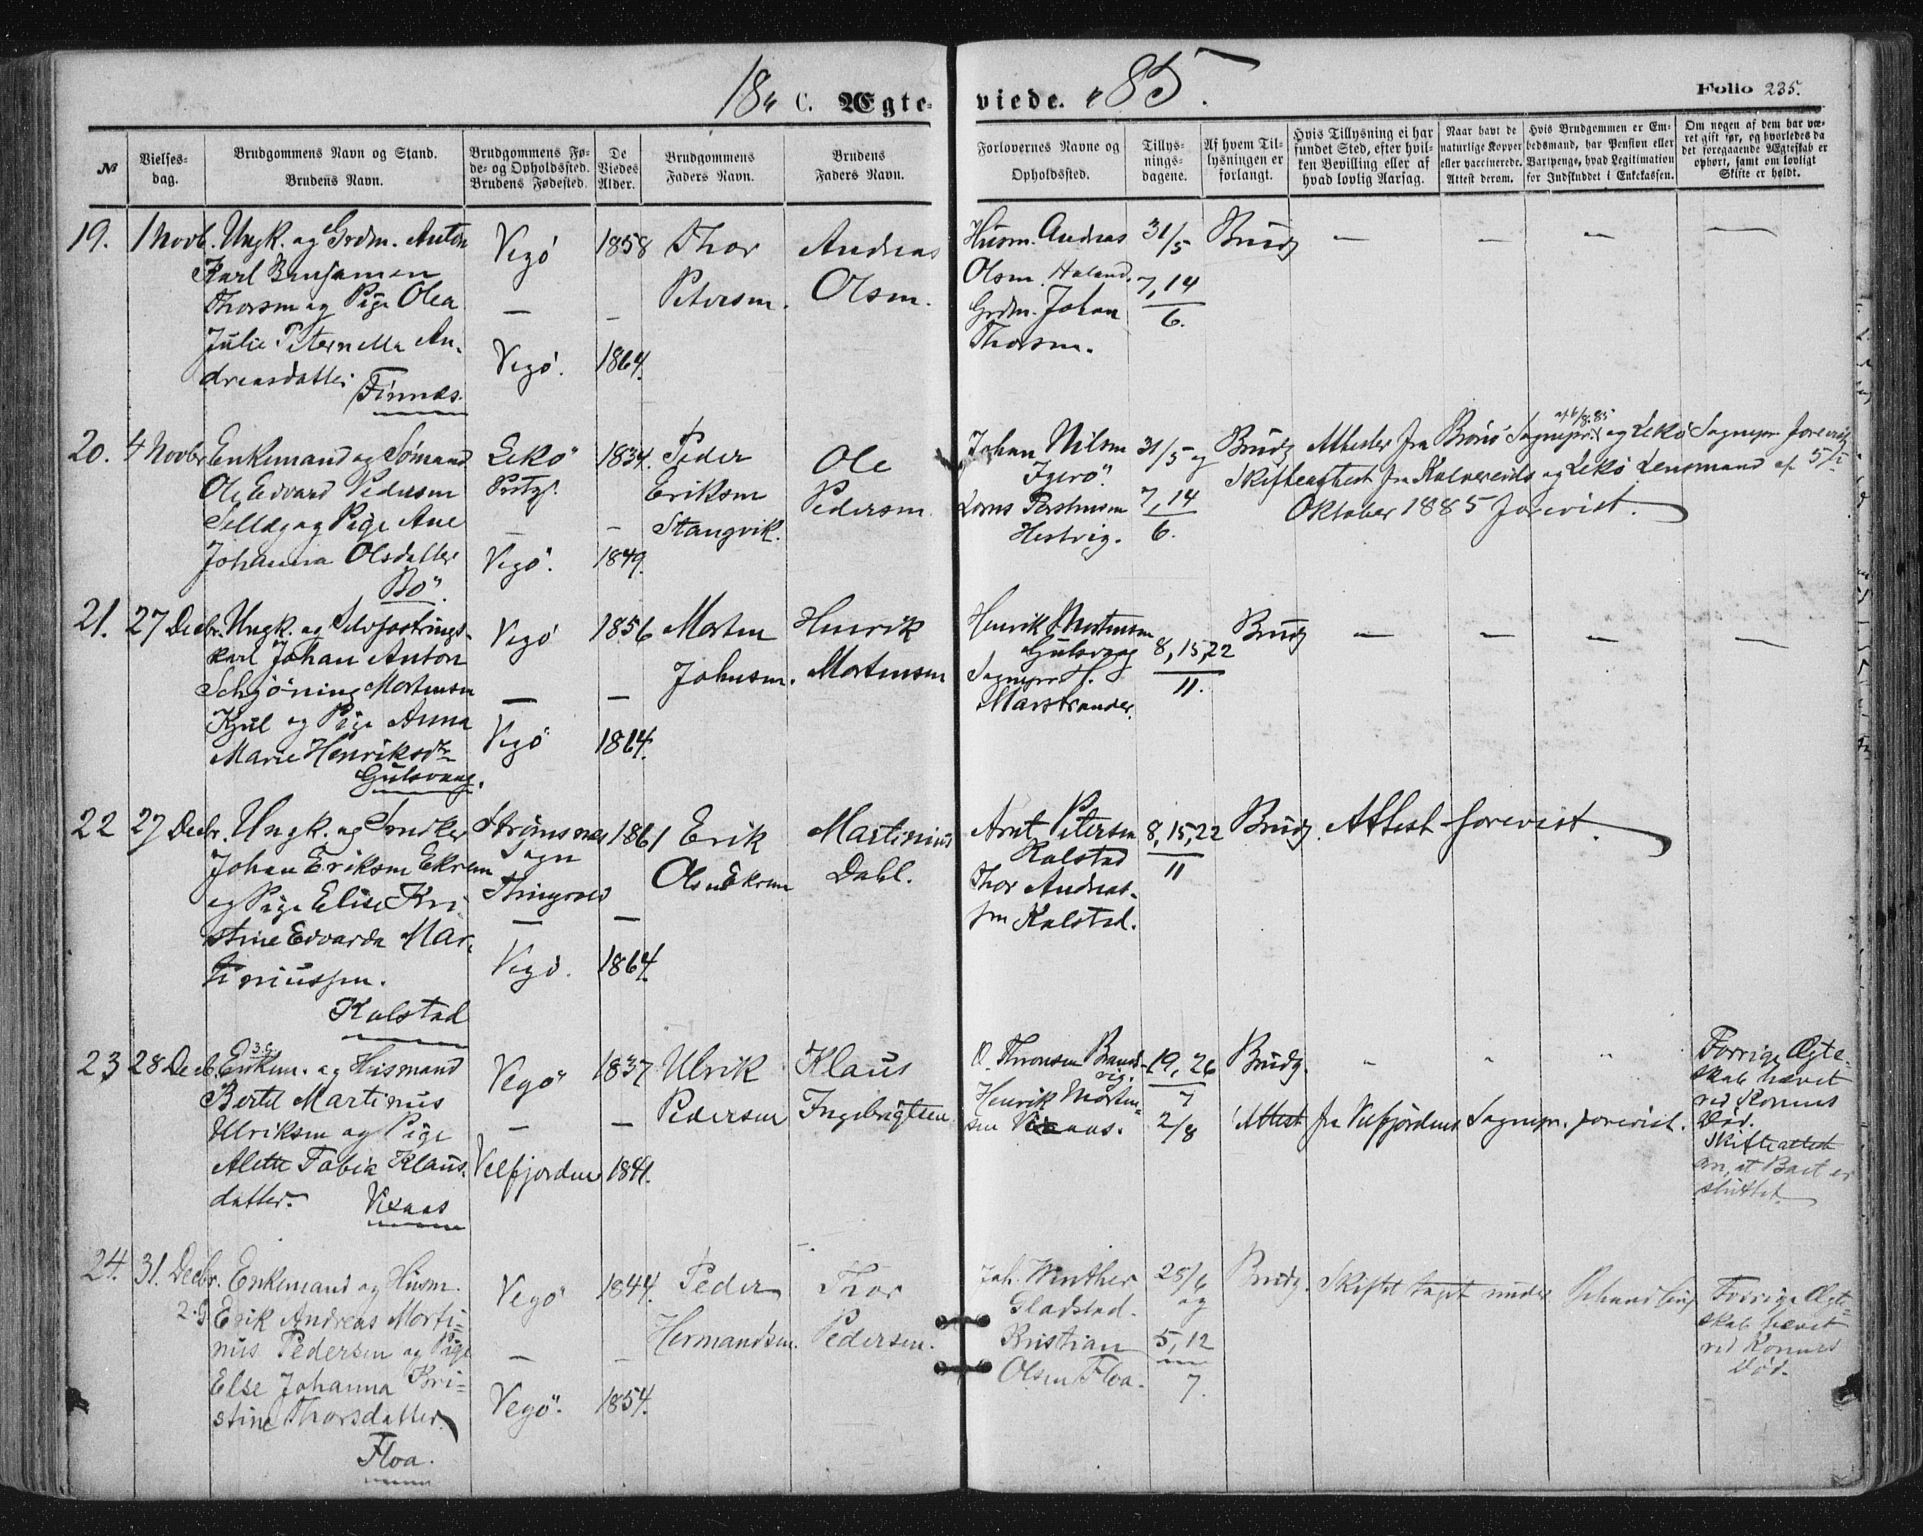 18" C. Ægte- viede. "85.
Folio 235.
№
Vielses-
dag.
Brudgommens Navn og Stand.
Brudens Navn.
Brudgommens Fø-
de- og Opholdssted.
Brudens Fødested.
De
Viedes
Alder.
Brudgommens
Faders Navn.
Brudens
Faders Navn.
Forlovernes Navne og
Opholdssted.
Tillys-
nings-
dagene.
Af hvem Til-
lysningen er
forlangt.
Hvis Tillysning ei har
fundet Sted, efter hvil-
ken Bevilling eller af
hvad lovlig Aarsag.
Naar havt de
naturlige Kopper
eller vaccinerede.
Attest derom.
Hvis Brudgommen er Em-
bedsmand, har Pension eller
Vartpenge, hvad Legitimation
for Indskuddet i Enkekassen.
Om nogen af dem har væ-
ret gift før, og hvorledes da
det foregaaende Ægteskab er
ophørt, samt om lovligt
Skifte er holdt.
19. 1 Novb.
Ungk. og Grdm. Anton
Karl Benjamen
Thorsen og Pige Olea
Julie Peternella An-
dreasdatter
Finnes.
Vegö
—
Vegö.
1858
—
1864.
Thor
Petersen.
Andreas
Olsen.
Husm. Andreas
Olsen Haland.
Grdm. Johan
Thorsen.
31/5
7, 14
6.
Brudg — — — —
20. 4 Novbr
Enkemand og Sömand
Ole Edvard Pedersen
og Pige Ane
Johanna Olsdatter
Bö.
Lekö
Prstgj.
—
Vegö.
1834.
—
1849.
Peder
Eriksen
Stangvik.
Ole
Pedersen
Johan Nilsen
Igerö.
31/5 og
7, 14
6.
Brudg Attester fra Brönö Sognepr. af 6/8 85 og Lekö Sognepr forevist
Skifteattest fra og Lekö Lensmand af
Oktober 1885 forevist.
21. 27 Decbr.
Ungk. og Selvfostrings-
karl Johan Anton
Schjöning Mortensen
Kjul og Pige Anna
Marie Henriksdtr
Gulsvaag.
Vegö
—
Vegö
1856
—
1864.
Morten
Johnsen.
Henrik
Mortensen
Henrik Mortensen
Gulsvaag
Sognepr H.
Marstrander.
8, 15, 22
11.
Brudg — — — —
22 27 Decbr.
Ungk. og
Johan Eriksen Ekrem
og Pige Elise Kri-
stine Edvarda Mar-
tiniussen.
Kalstad
Strömsnes
Sogn
Thingvold
—
Vegö.
1861
—
1864.
Erik
Olsen Ekrem
Martinius
Dahl.
Arnt Petersen
Kalstad
Thor Andreas-
sen Kalstad.
8, 15, 22
11
Brudg. Attest forevist.
23 28 Decb.
Enkem. og Husmand
Bertel Martinus
Ulriksen og Pige
Alette Tobia Klaus-
datter.
Vixaas
Vegö
—
Velfjorden
1837
—
1841.
Ulrik
Pedersen
Klaus
Ingebrigtsen
O. Thronsen Brand-
vig.
Henrik Morten-
sen Vixaas.
19, 26
7
2/8
Brudg. " " "
Attest fra Velfjordens Sognepr. forevist.
Forrige Ægte-
skab hævet
ved Konens
Död.
Skifteattest
om, at Boet er
sluttet.
24. 31. Decbr.
Enkemand og Husm.
2. G Erik Andreas Morti-
nus Pedersen og Pige
Else Johanna Kri-
stine Thorsdatter
Floa.
Vegö
—
Vegö.
1844.
—
1854.
Peder
Hermandsen.
Thor
Pedersen.
Joh. Winther
Gladstad.
Kristian
Olsen Floa.
28/6
og
5, 12
7.
Brudg. Skiftet taget under Behandling
Forrige Ægte-
skab hævet
ved Konens
Död.